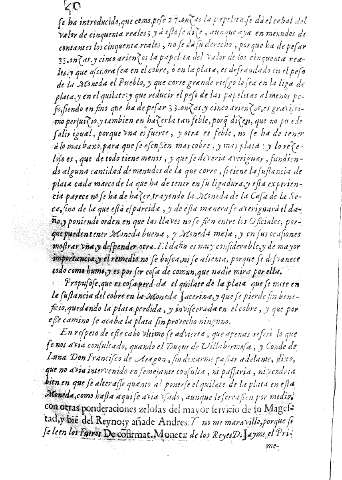 se ha introducido, que como pese 27. onzas la papelina se dá el cabal del
valor de cinquenta reales; y â esto se dize, aunque aya en menudos de
contantes los cinquenta reales, no se dá su derecho, porque ha de pesar
33. onzas, y cinco arienzos la papelina del valor de los cinquenta rea-
les, y que aora sea en el cobre, ò en la plata, es defraudado en el peso
de la Moneda el Pueblo, y que corre grosso lesa en la liga de
plata, y en el
diendo en fins que ha de pesar 33. onzas, y cinco arienzos, es gravissi-
mo perjuizo, y tambien en hazerla tan feble, porq̃ dizen, que no pue de
salir igual, porque vna es fuerte, y otra es feble, no se ha de tener
à lo mas bano, para que se escusen mas cobre, y mas plata: y lo reze-
loso es, que de todo tiene menos, y que se deveria averiguar, fundien-
do alguna cantidad de menudos de la que corre, si tiene la sustancia de
plata cada marco de la que ha de tener en su ligadura, y esta experien-
cia parece no se ha de hazer, trayendo la Moneda de la Casa de la Se-
ca, sino de la que està esparcida, y de esta manera se averiguará el da-
ño, y poniendo orden en que las llaves no se fien entre los Oficiales, por-
que pueden tener Moneda buena, y Moneda mala, y en sus ocasiones
mostrar vna, y despender otra. El daño es muy considerable, y de mayor
importancia, y el remedio no se busca, ni se alienta, porque se desvanece
todo como humo, y es por ser cosa de comun, que nadie mira por ella.
Propusose, que es cosa perdida el quilate de la plata que se mete en
la sustancia del cobre en la Moneda Jacetenza, y que se pierde sin bene-
ficio, quedando la plata perdida, y inviscerada en el cobre, y que por
este camino se acaba la plata sin provecho ninguno.
En respeto de este cabo vltimo se advierta, que apenas restò lo que
se nos avia consultado, quando el Duque de Villahermosa, y Conde de
Luna Don Francisco de Aragon, sin dexarme passar adelante, dixo,
que no avia intervenido en semejante consulta, ni passaria, ni vendria
bien en que se alterasse quanto al ponerse el quilate de la plata en està
Moneda, como hasta aqui se avia vsado, aunque le serviesen por medio;
con otras ponderaciones zelosas del mayor servicio de su Mages-
tad, y biẽ del Reyno; y añade Andres: Y no me maravillo, porque si
se leen los Fueros De cõfirmat. Monetæ de los Reyes D. Jayme el Pri-
me-